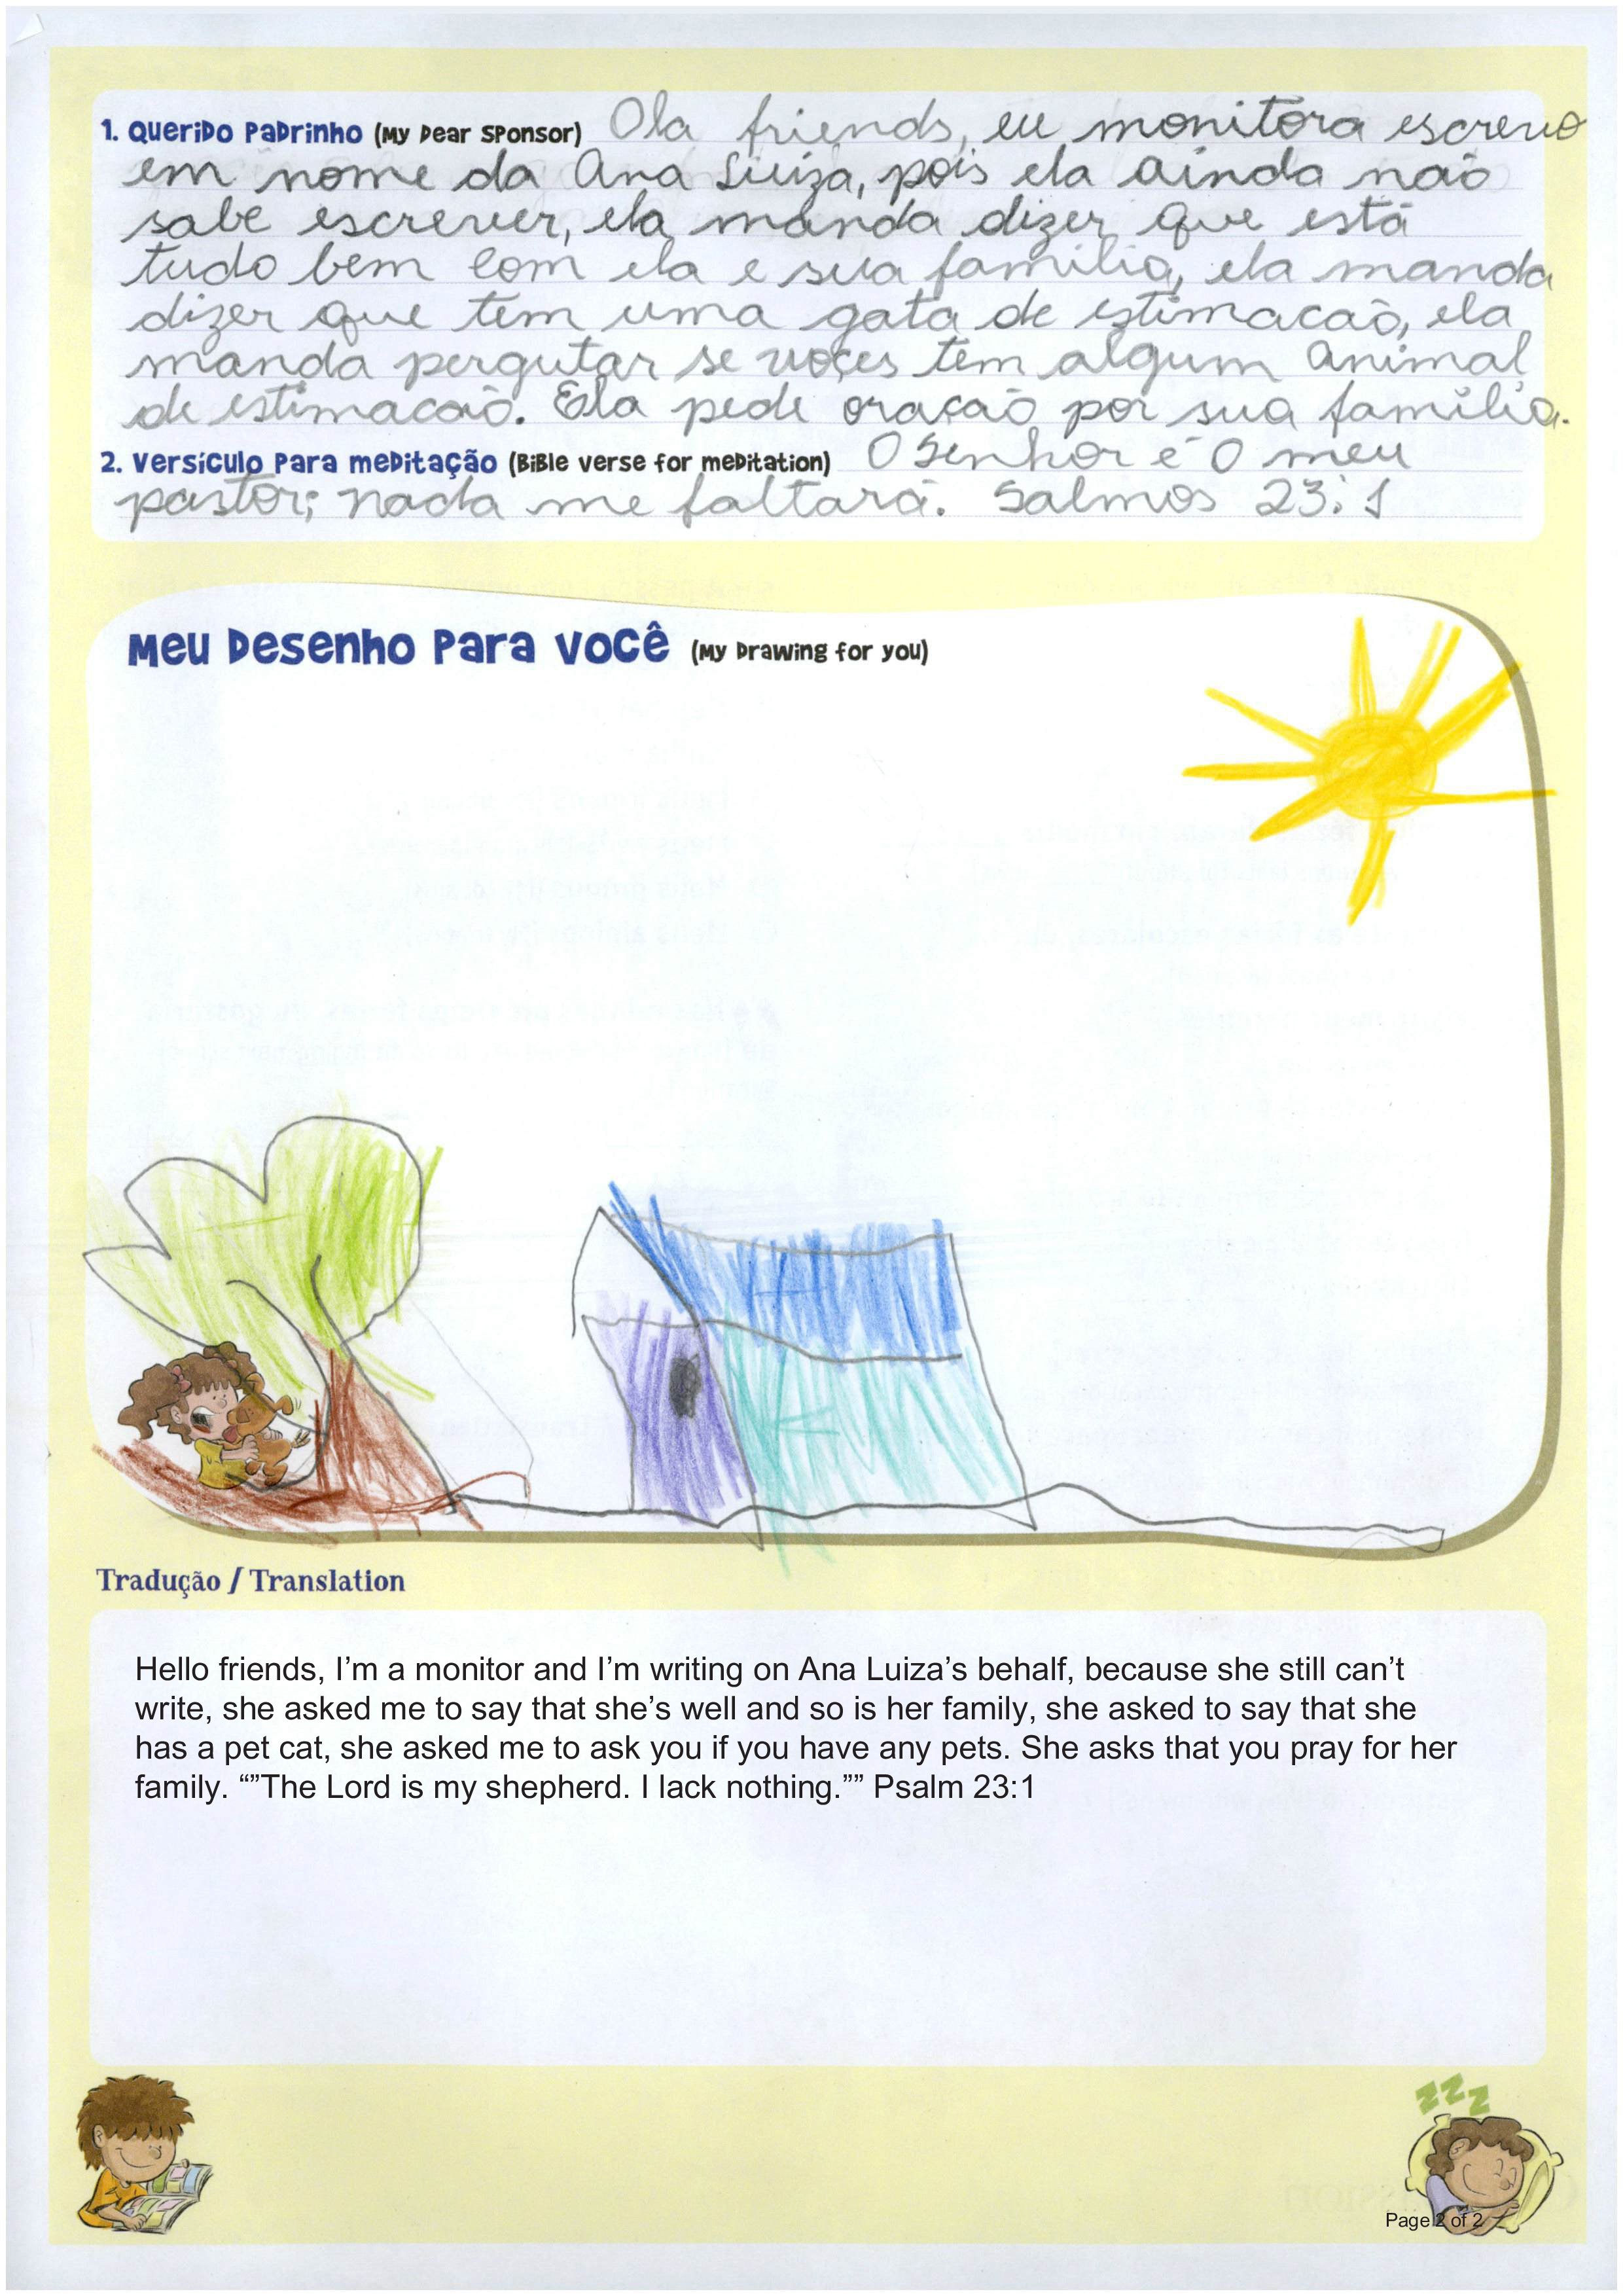 1. Querido Padrinho (My Dear Sponsor) Ola friends, eu monitora escrevo
em nome da Ana Luiza, pois ela ainda não
sabe escrever, ela manda dizer que está
tudo bem com ela e sua família, ela manda
dizer que tem uma gata de estimacaõ, ela
manda pergutar se voçes tem algum animal
de estimacaõ. Ela pede oracaõ por sua família.
2. Versículo para meditação (Bible verse for meditation) O Senhor é o meu
pastor; nada me faltará. Salmos 23:1
Meu desenho para você (My drawing for you)
Tradução / Translation
Hello friends, I’m a monitor and I’m writing on Ana Luiza’s behalf, because she still can’t
write, she asked me to say that she’s well and so is her family, she asked to say that she
has a pet cat, she asked me to ask you if you have any pets. She asks that you pray for her
family. “”The Lord is my shepherd. I lack nothing.”” Psalm 23:1
zzz
Page 2 of 2